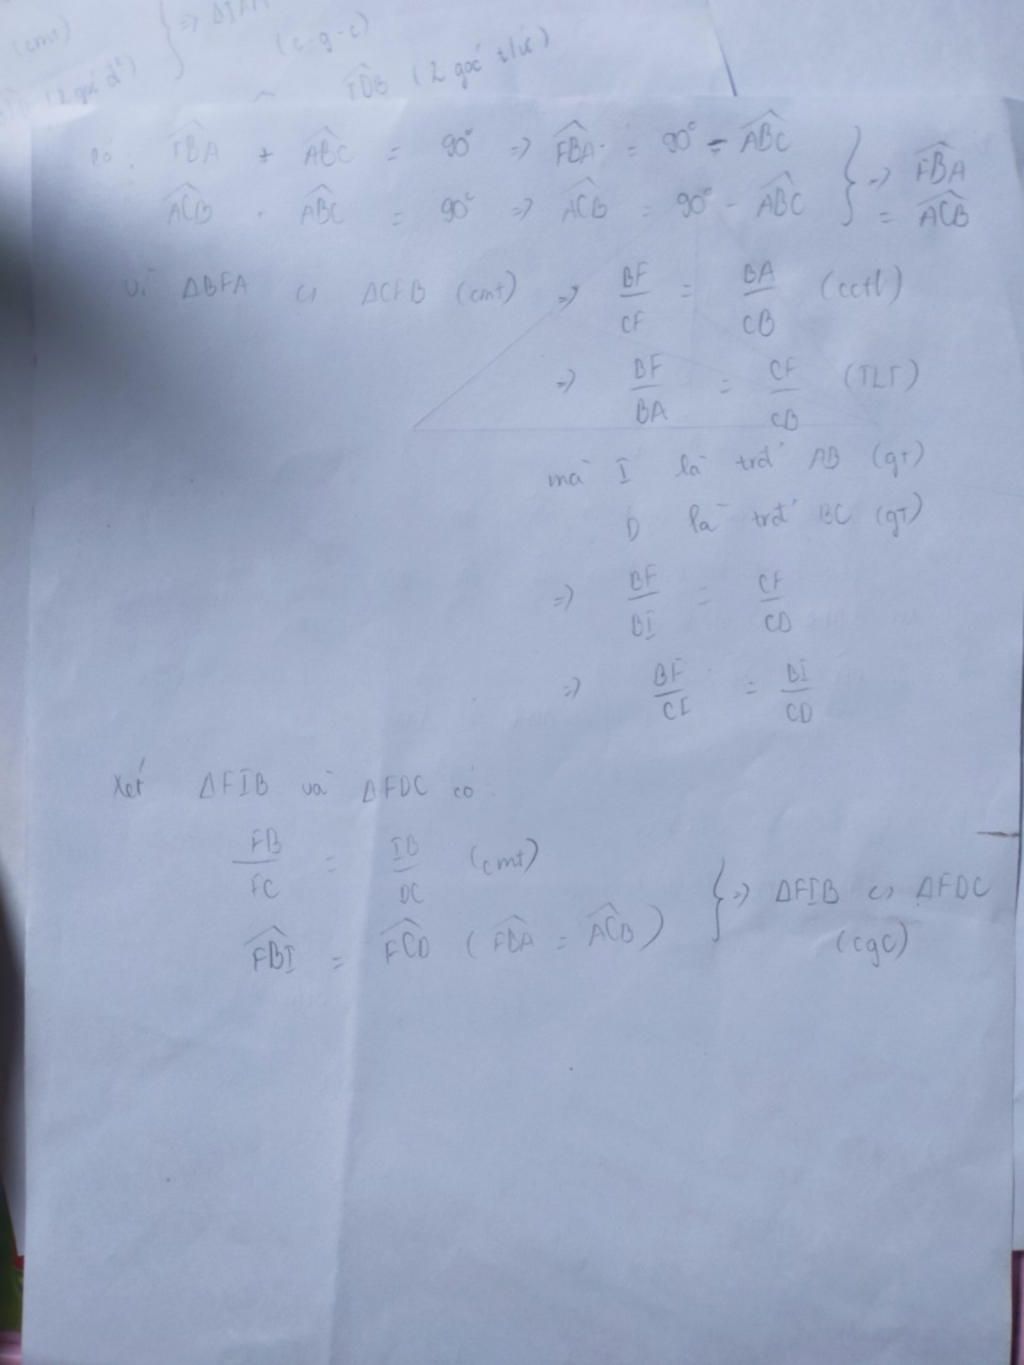 (cmt)
(2 góc đ²)
} => ΔIAM
(c-g-c)
IDB (2 góc t/ứ)
Có: FBA + ABC = 90° => FBA = 90° - ABC
ACB + ABC = 90° => ACB = 90° - ABC
} => FBA = ACB
Vì ΔBFA ∽ ΔCFB (cmt) => BF/CF = BA/CB (cctl)
=> BF/BA = CF/CB (TLT)
mà I là trđ AB (gt)
D là trđ BC (gT)
=> BF/BI = CF/CD
=> BF/CF = BI/CD
Xét ΔFIB và ΔFDC có:
FB/FC = IB/DC (cmt)
FBI = FCD (FBA = ACB)
} => ΔFIB ∽ ΔFDC
(cgc)